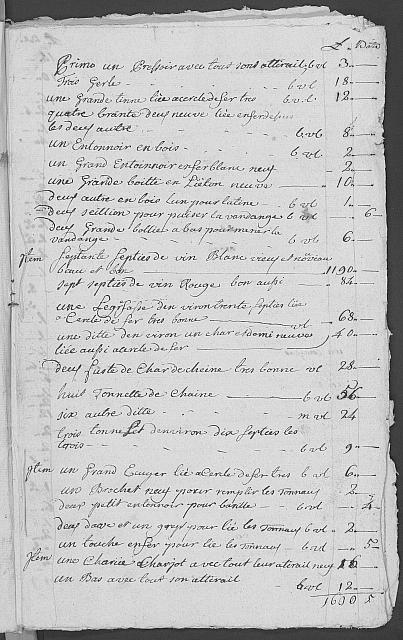 L. Batz
Primo un Pressoir avec tous sons attirail b vl 3 —
Trois Gerle — b vl 18 —
une Grande tinne liée a cercle de fer tres b vl 12 —
quatre brante deus neuve liée en fer deus
les deus autre — b vl 8 —
un Entonnoir en bois — b vl 2 —
un Grand Entoinnoir en fer blanc neuf — 2 —
une Grande boitte en Lieton neuve — 10 —
deus autre en bois un pour la tine b vl 1 —
deus seillion pour puiser la vandange b vl — 6
deus Grande bollier a bas pour la
vandange — b vl 6 —
Item septante septiés de vin Blanc vieux et nouveau
beau et bon — 1190 —
sept septiés de vin Rouge bon aussi — 84
une Legrefasse denviron trente septies liée
a Cercle de fer tres bonne — vl 68 —
une ditte denviron un char et demi neuve 40 —
liée aussi a cercle de fer
deus fuste de Char de cheine tres bonne vl 28 —
huit Tonnette de Chaine — b vl 56
six autre ditte — m vl 24
trois tonnelet denviron dix septies les
trois — b vl 9 —
Item un Grand Cuvier lié a Cercle de fer tres b vl 6 —
un Brochet neuf pour remplir les Tonnaus — 2 —
deus petit entonnoir pour — b vl — 4
deus et un pour lie les Tonnaus b vl 2 —
un touche en fer pour lie les Tonnaus b vl — 5
Item une Charjot avec tout leur atirail neuf 16
un Bas avec tout son attirail b vl 12 —
1600 5